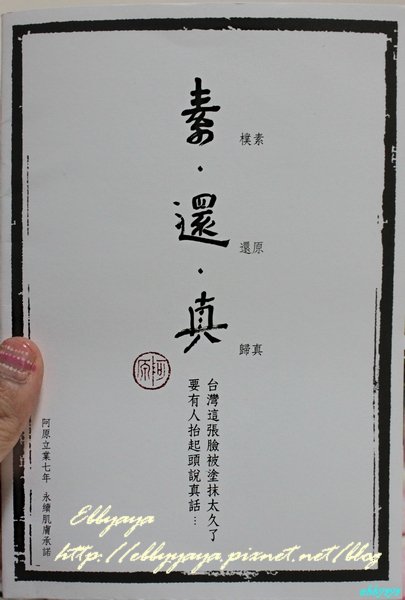 素・還・真
樸素
還原
歸真
阿原
台灣這張臉被塗抹太久了
要有人抬起頭說真話…
阿原立業七年 永續肌膚承諾
Ebbyaya
http://ebbyyaya.pixnet.net/blog